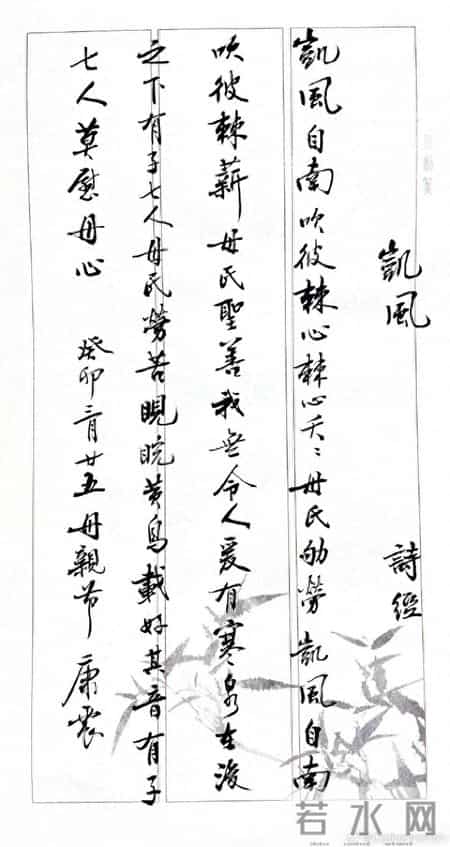 凱風 詩經
凱風自南吹彼棘心棘心夭〻母氏劬勞凱風自南
吹彼棘薪母氏聖善我無令人爰有寒泉在浚
之下有子七人母氏勞苦睍睆黄鳥載好其音有子
七人莫慰母心 癸卯三月廿五母親节 康震
若水网